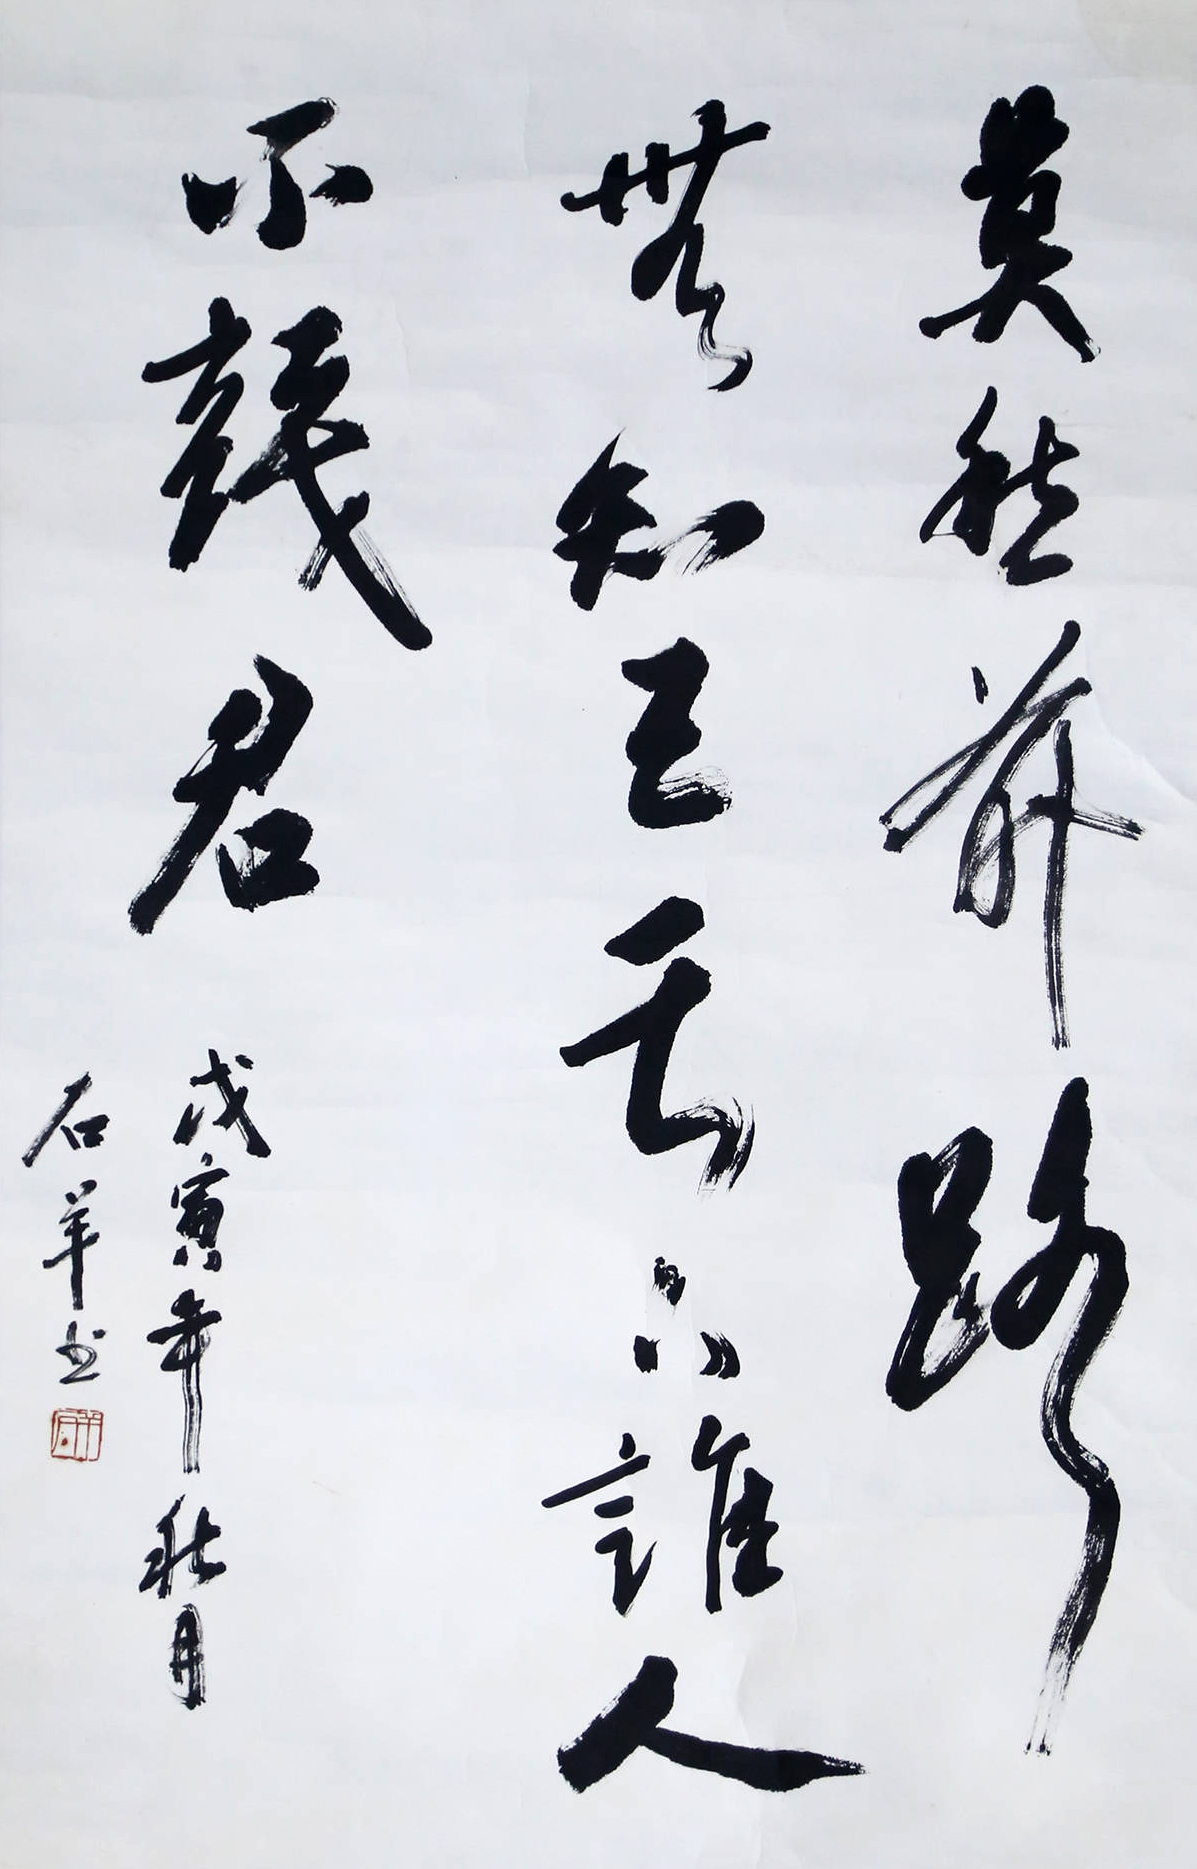 莫愁前路
無知己天下誰人
不識君 戊寅年秋月
石羊书